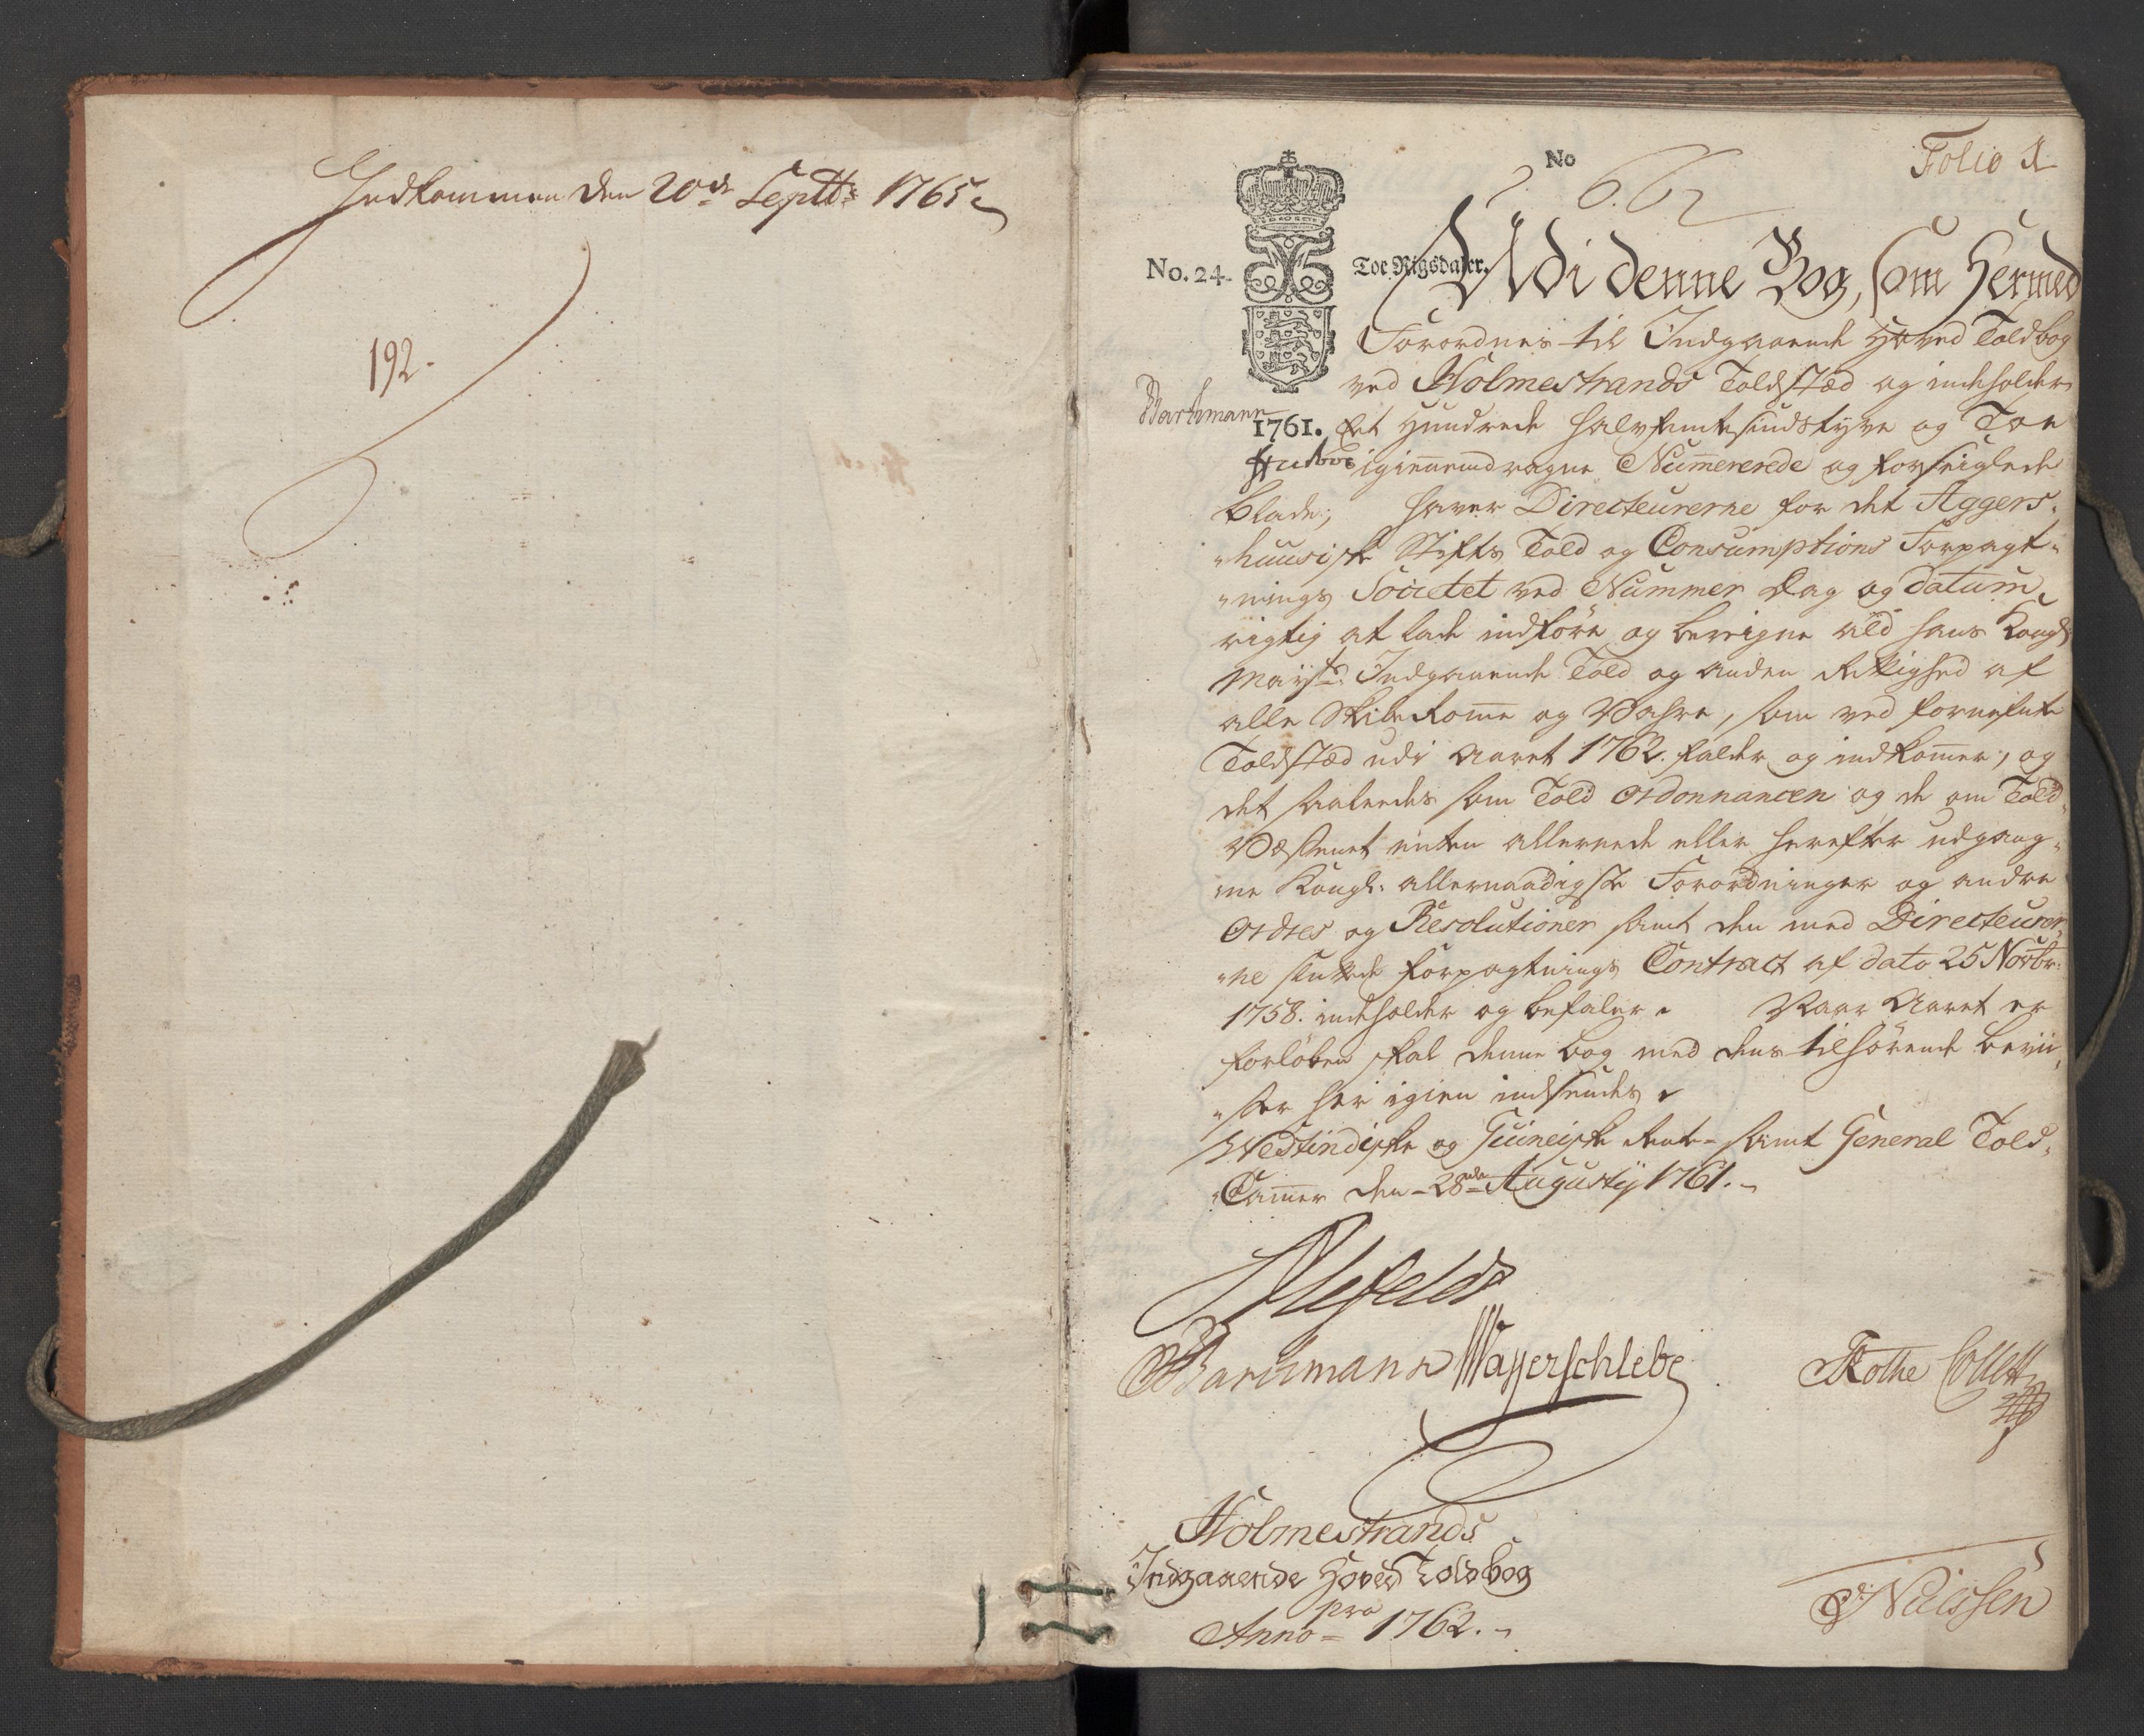 Indkommen den 20de Septbr: 1765
192.
Folio 1
No
662
No. 24.
Toe Rigsdaler.
Udi denne Bog, som Hermed
Forordnes til Indgaaende Hoved Toldbog
ved Holmestrands Toldstæd og indeholder
Barthmann
1761. Eet Hundrede halvfemtesindstyve og Toe
igiennemdragne Nummererede og forseiglede
blade, haver Directeurerne for det Aggers-
huusiske Stifts Told og Consumptions Forpagt-
nings Societet ved Nummer Dag og datum
rigtig at lade indføre og beregne all hans Kongl:
Mayts: Indgaaende Told og anden Rettighed af
alle Skibe Rome og Vahre, som ved fornefnte
Toldstæd udi Aaret 1762. falder og indkomer, og
det saaledes som Told Ordonnancen og de om Told-
Væsenet enten allerede eller herefter udgaag-
ne Kongl: allernaadigste Forordninger og andre
Ordres og Resolutioner samt den med Directeurer-
ne sluttede forpagtnings Contract af dato 25 Novbr:
1758. indeholder og befaler. Naar Aaret er
forløben skal denne bog med dens tilhørende beviis-
ser her igien indsendes.
Westindiske og Guineiske Rente- samt General Told-
Camer den 28de Augustij 1761.
Alefeldt
Barthmann Wasserschlebe Rothe Collett
Holmestrands
Indgaaende Hoved Toldbog
pro
Anno 1762.
Nissen